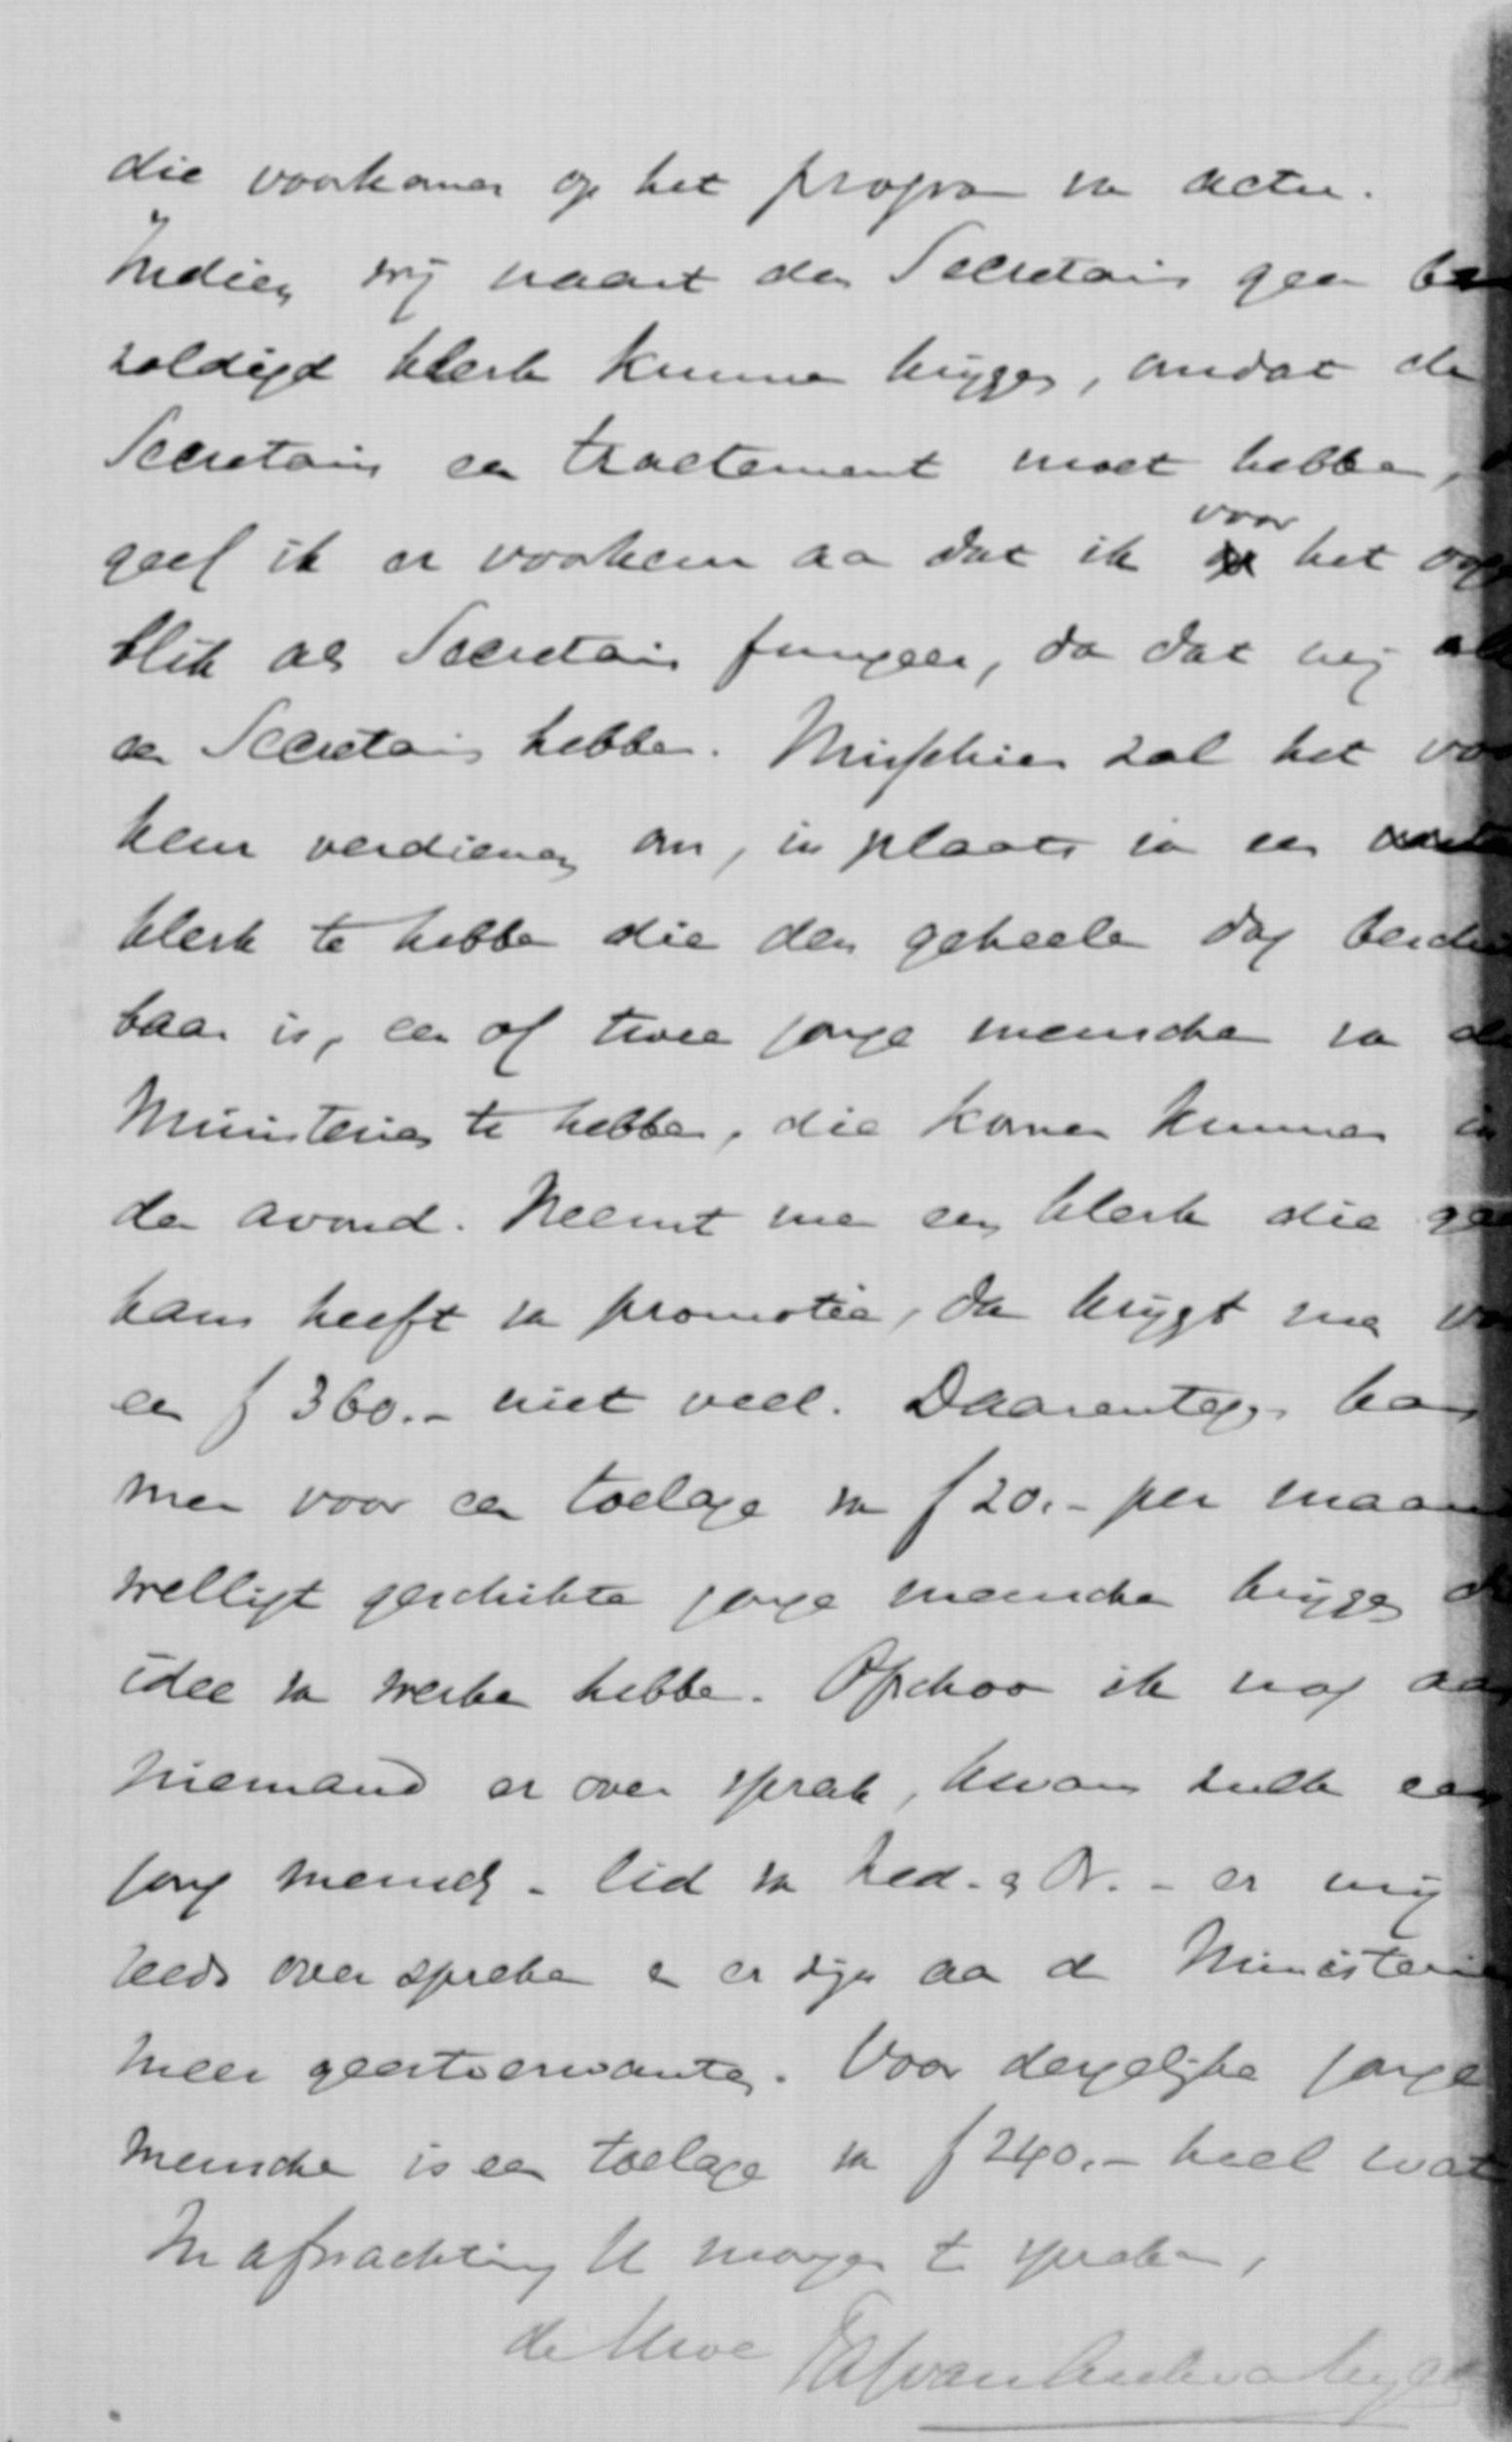 die voorkomen op het program van actie.
Indien wij naast den Secretaris geen be
zoldigd klerk kunnen krijgen, omdat de
Secretaris een tractement moet hebben,
geef ik er voorkeur aan dat ik voor het oog
blik als Secretaris fungeer, dan dat wij
een Secretaris hebben. Misschien zal het voor
keur verdienen om, in plaats van een
klerk te hebben die den geheelen dag beschik
baar is, een of twee jonge menschen van de
Ministeries te hebben, die komen kunnen in
den avond. Neemt men een klerk die geen
kans heeft van promotie, dan krijgt men voor
een f 360.- niet veel. Daarentegen kan
men voor een toelage van f 20.- per maand
welligt geschikte jonge menschen krijgen die
idee van werken hebben. Ofschoon ik nog aan
niemand er over sprak, kwam zulk een
jong mensch - lid van Ned. & Or. - er mij
reeds over spreken en er zijn aan de Ministerie
meer geestverwanten. Voor dergelijke jonge
menschen is een toelage van f 240.- heel wat
In afwachting U morgen te spreken,
de Uwe